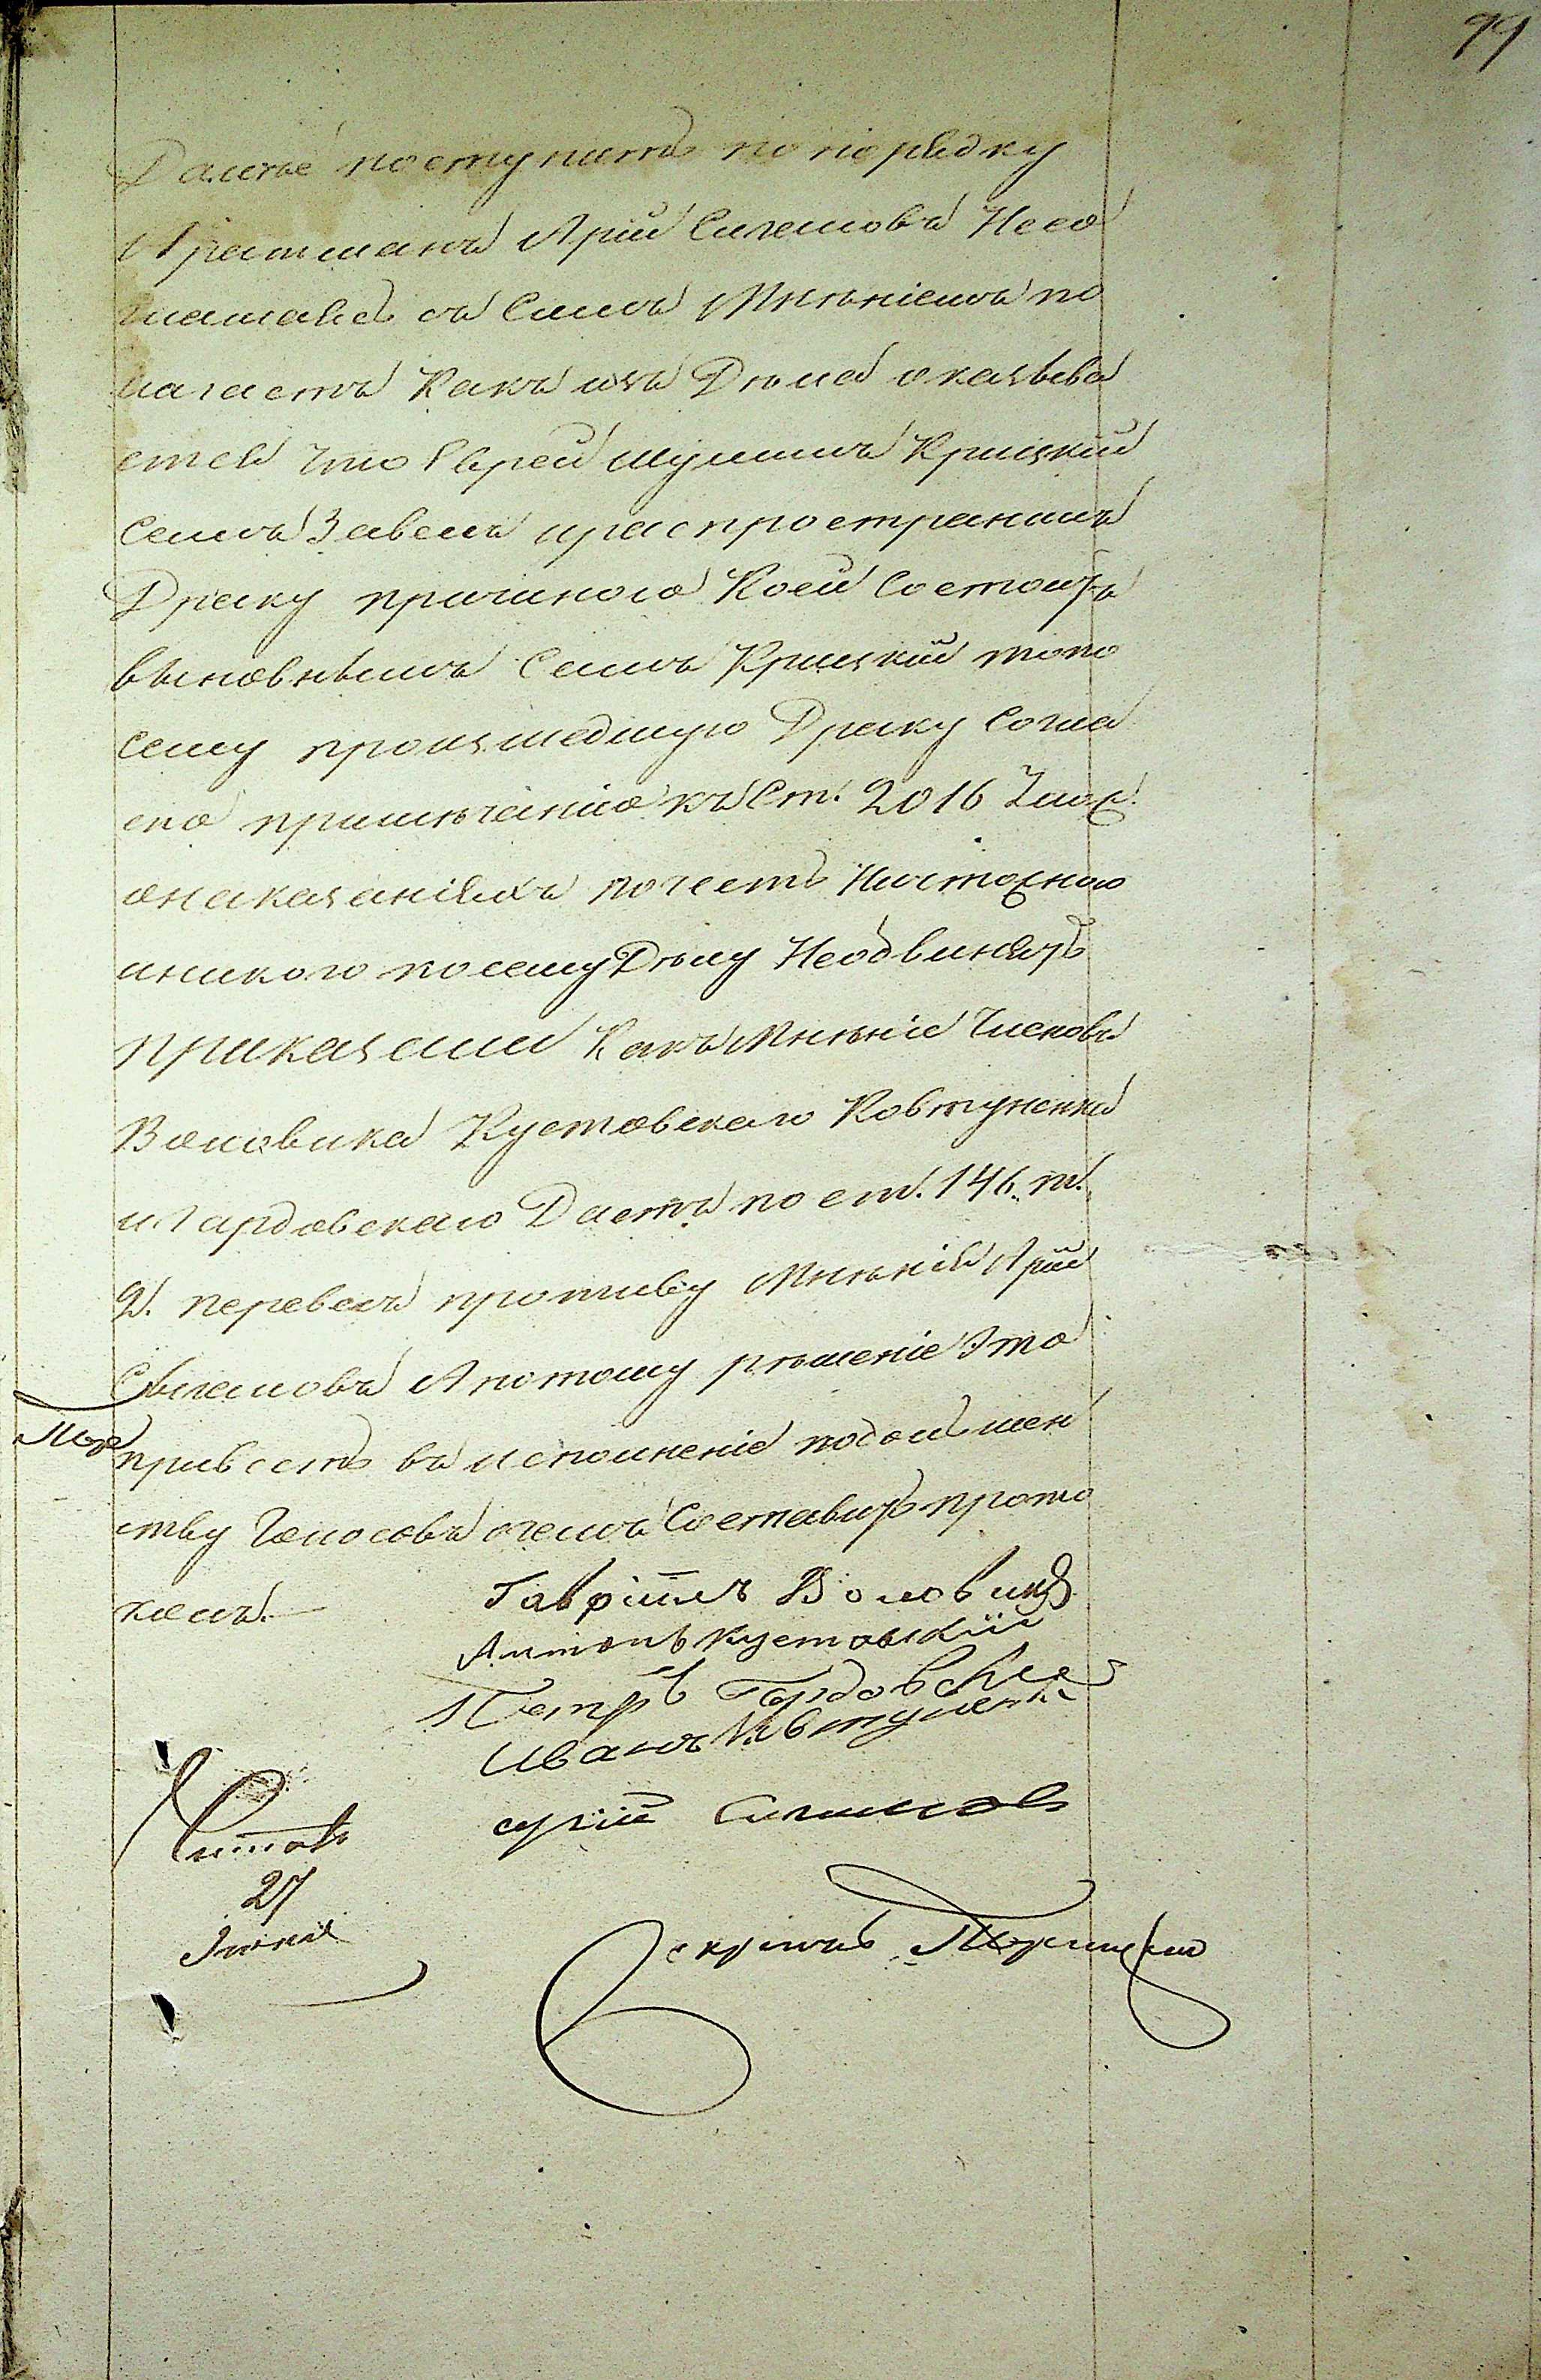 99
Далѣе поступить по порядку
Аратманъ Арій Силемовъ Несо
глашаясь съ Симъ Мнѣніемъ по
лагаетъ Какъ изъ Дѣла оказыва
ется что Еврей Шулимъ Крицкій
Самъ Завелъ и распространилъ
Драку причиною Коей Состоитъ
выновнымъ Самъ Крицкій то по
сему произшедшую Драку Согла
сно примѣчанію къ Ст. 2016 Улож.
о наказаніяхъ почесть Ничтожною
и никого посему Дѣлу Необвинять
приказали Какъ Мнѣніе Членовъ
Воловика Кустовскаго Ковтуненка
и Гардовскаго Даетъ по ст. 146. т.
2. перевесъ противу Мнѣнія Арій
Сылемовъ А потому рѣшеніе Это
привесть въ исполненіе по большин
ству Голосовъ о чемъ Составить прото
колъ.
Гавріилъ Воловикъ
Антонъ Кустовскій
Петръ Гардовскій
Иванъ Ковтуненко
Арій Силемовъ
Читалъ
27
Іюня